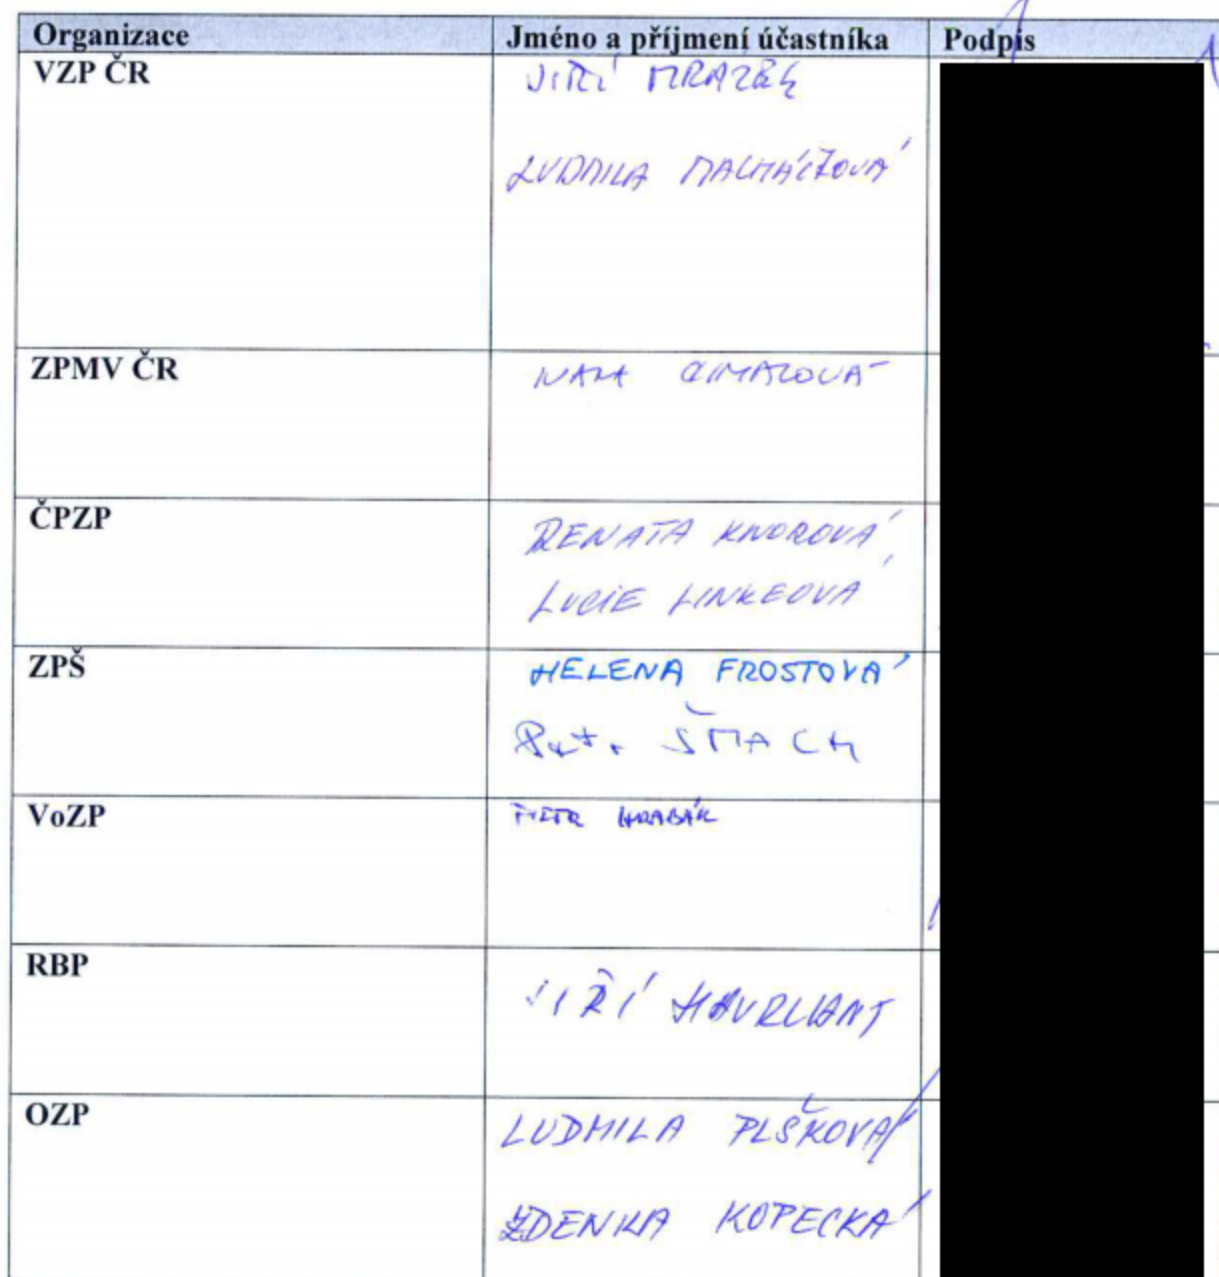 Organizace Jméno a příjmení účastníka Podpis
VZP ČR JIŘÍ MRAZEK
LUDMILA
ZPMV ČR IVANA
ČPZP RENATA KNOROVÁ
LUCIE LINKEOVÁ
ZPŠ HELENA FROSTOVÁ
Petr ŠMACH
VoZP PETR HRABÁK
RBP JIŘÍ HAVRLANT
OZP LUDMILA PLŠKOVÁ
ZDENKA KOPECKÁ